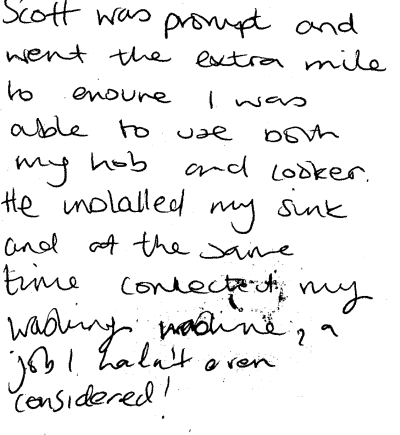 Scott was prompt and
went the extra mile
to ensure I was
able to use both
my hob and cooker.
He installed my sink
and at the same
time connected my
washing machine, a
job I hadn't even
considered!